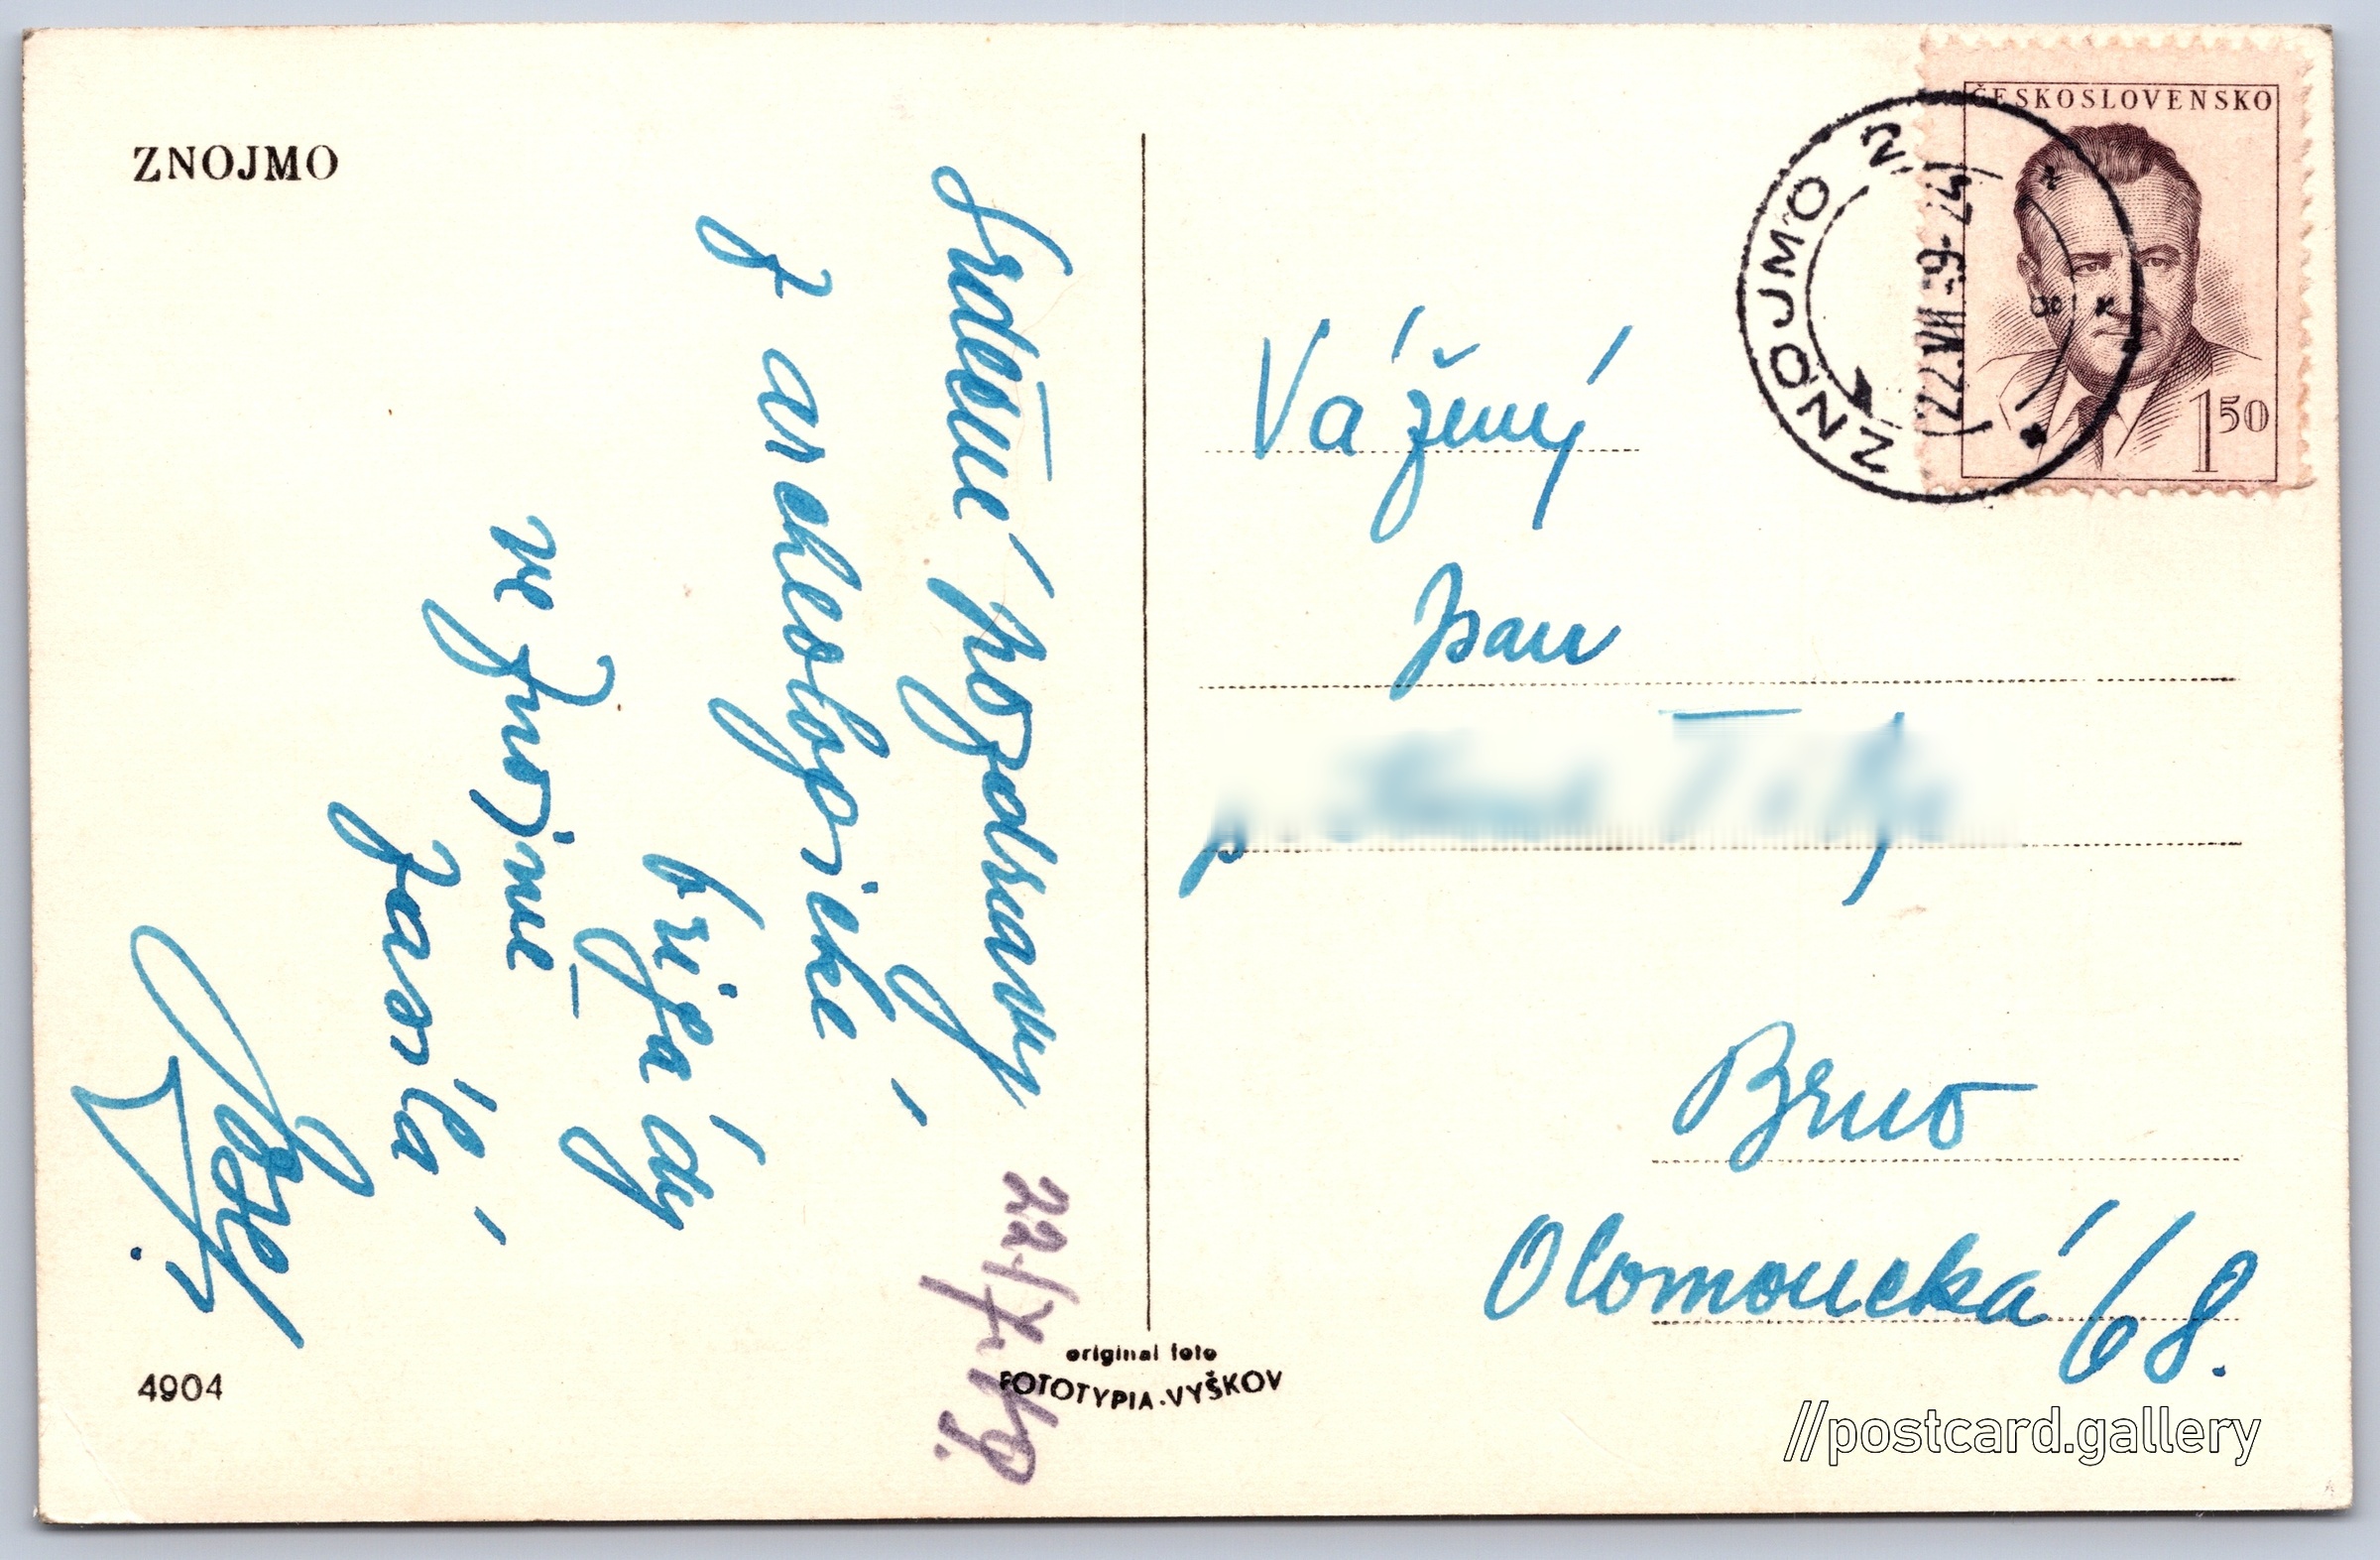 ZNOJMO
Srdečné pozdravy
z archeologické
brigády
ve Znojmě
zasílá
Josef
22./7.49.
4904
original foto
FOTOTYPIA-VYŠKOV
ČESKOSLOVENSKO
1 50
ZNOJMO 2
22.VII.49-17
Vážený
pan
p.
Brno
Olomoucká 68.
//postcard.gallery